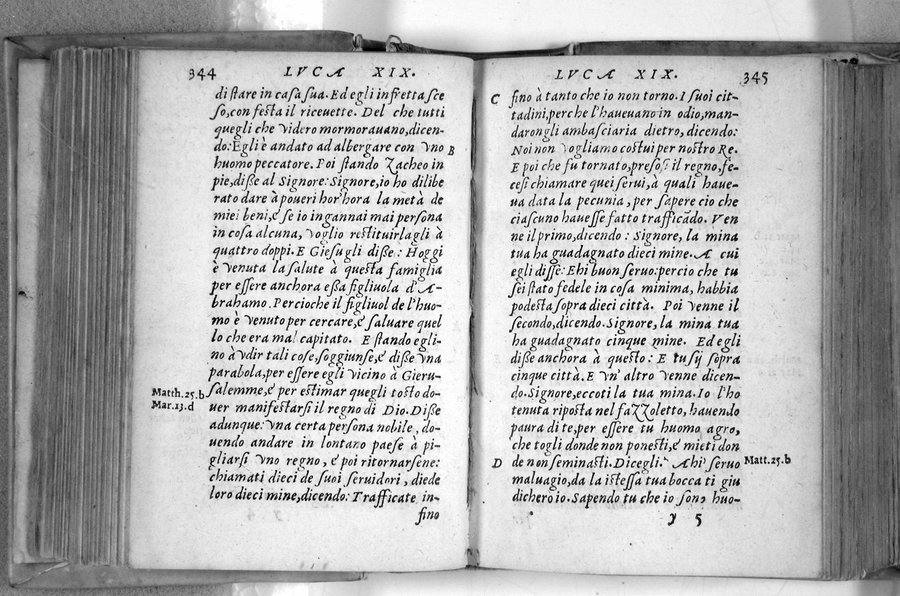 344 LVCA XIX.
di stare in casa sua. Ed egli in fretta sce
so, con festa il riceuette. Del che tutti
quegli che videro mormorauano, dicen-
do: Egli è andato ad albergare con vno
B
huomo peccatore. Poi stando Zacheo in
pie, disse al Signore: Signore, io ho dilibe
rato dare à poueri hor'hora la metà de
miei beni, e se io ingannai mai persona
in cosa alcuna, voglio restituirlagli à
quattro doppi. E Giesu gli disse: Hoggi
è venuta la salute à questa famiglia
per essere anchora essa figliuola d'A-
brahamo. Percioche il figliuol de l'huo-
mo è venuto per cercare, e saluare quel
lo che era mal capitato. E stando egli-
no à vdir tali cose, soggiunse, e disse vna
parabola, per essere egli vicino à Gieru-
salemme, e per estimar quegli tosto do-
Matth. 25. b
Mar. 13. d
uer manifestarsi il regno di Dio. Disse
adunque: Vna certa persona nobile, do-
uendo andare in lontano paese à pi-
gliarsi vno regno, e poi ritornarsene:
chiamati dieci de suoi seruidori, diede
loro dieci mine, dicendo: Trafficate in-
fino
LVCA XIX. 345
C
fino à tanto che io non torno. I suoi cit-
tadini, perche l'haueuano in odio, man-
darongli ambasciaria dietro, dicendo:
Noi non vogliamo costui per nostro Re.
E poi che fu tornato, presosi il regno, fe-
cesi chiamare quei serui, à quali haue-
ua data la pecunia, per sapere cio che
ciascuno hauesse fatto trafficado. Ven
ne il primo, dicendo: Signore, la mina
tua ha guadagnato dieci mine. A cui
egli disse: Ehi buon seruo: percio che tu
sei stato fedele in cosa minima, habbia
podesta sopra dieci città. Poi venne il
secondo, dicendo. Signore, la mina tua
ha guadagnato cinque mine. Ed egli
disse anchora à questo: E tu sij sopra
cinque città. E vn' altro venne dicen-
do. Signore, eccoti la tua mina. Io l'ho
tenuta riposta nel fazzoletto, hauendo
paura di te, per essere tu huomo agro,
che togli donde non ponesti, e mieti don
D
de non seminasti. Dicegli. Ahi seruo
Matt. 25. b
maluagio, da la istessa tua bocca ti giu
dichero io. Sapendo tu che io son, huo-
y 5